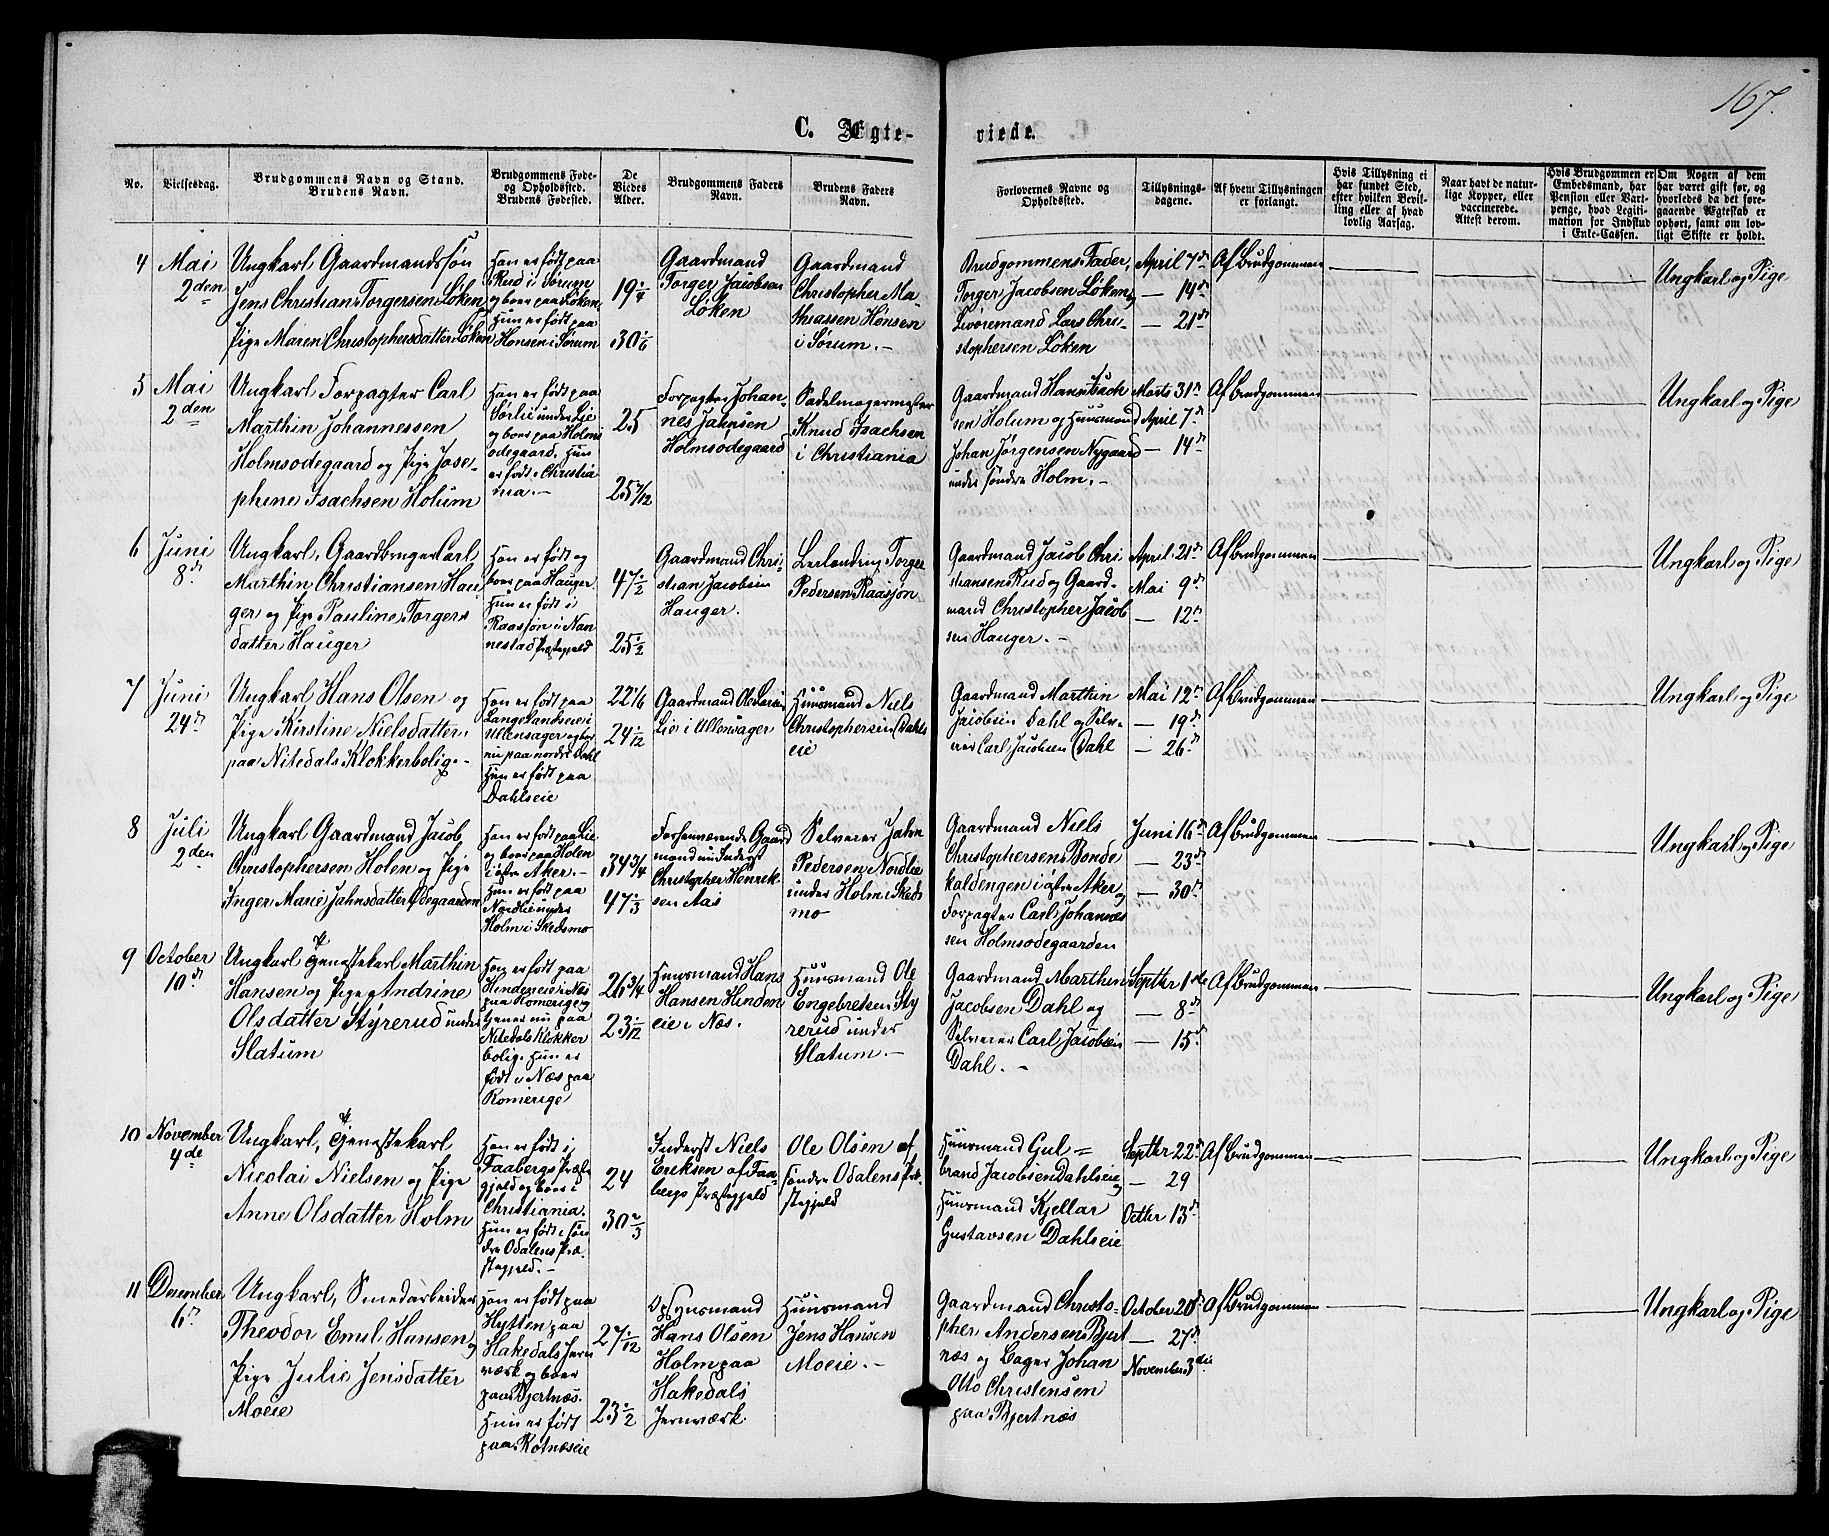 167.
C. Ægte-
viede.
No.
Vielsesdag.
Brudgommens Navn og Stand.
Brudens Navn.
Brudgommens Føde-
og Opholdssted.
Brudens Fødested.
De
Viedes
Alder.
Brudgommens Faders
Navn.
Brudens Faders
Navn.
Forlovernes Navne og
Opholdssted.
Tillysnings-
dagene.
Af hvem Tillysningen
er forlangt.
Hvis Tillysning ei
har fundet Sted,
efter hvilken Bevil-
ling eller af hvad
lovlig Aarsag.
Naar havt de natur-
lige Kopper, eller
vaccinerede.
Attest derom.
Hvis Brudgommen er
Embedsmand, har
Pension eller Vart-
penge, hvad Legiti-
mation for Indskud
i Enke-Cassen.
Om Nogen af dem
har været gift før, og
hvorledes da det fore-
gaaende Ægteskab er
ophørt, samt om lov-
ligt Skifte er holdt.
4
Mai
2den
Ungkarl Gaardmandssøn
Jens Christian Torgersen Løken
Pige Maren Christophersdatter Løken
Han er født paa
Rud i Sørum
og boer paa Løken
Hun er født paa
Hønsen i Sørum
19 1/4
30 1/6
Gaardmand
Torger Jacobsen
Løken
Gaardmand
Christopher Ma-
thiassen Hønsen
i Sørum.-
Brudgommens Fader,
Torger Jacobsen Løken og
Livøremand Lars Chri-
stophersen Løken
April 7de
— 14de
— 21de
Af Brudgommen
Ungkarl og Pige
5
Mai
2den
Ungkarl Forpagter Carl
Marthin Johannessen
Holmsødegaard og Pige Jose-
phine Isachsen Holum
Han er født paa
Sørlie under Lie
og boer paa Holms
ødegaard. Hun
er født i Christia
nia.-
25
25 7/12
Forpagter Johan-
nes Jahnsen
Holmsødegaard
Sadelmagermester
Knud Isachsen
i Christiania
Gaardmand Hans Isach
sen Holum og Huusmand
Johan Jørgensen Nygaard
under søndre Holm.-
Marts 31te
April 7de
— 14de
Af Brudgommen
Ungkarl og Pige
6
Juni
8de
Ungkarl, Gaardbruger Carl
Marthin Christiansen Hau
ger og Pige Pauline Torgers
datter Hauger
Han er født og
boer paa Hauger.
Hun er født i
Raasjøn i Nan
nestad Præstegjeld
47 1/2
25 1/2
Gaardmand Chri-
stian Jacobsen
Hauger.
Leilending Torger
Pedersen Raasjøn
Gaardmand Jacob Chri
stiansen Rud og Gaard-
mand Christopher Jacob
sen Hauger.-
April 21de
Mai 9de
— 12te
Af Brudgommen
Ungkarl og Pige
7
Juni
24de
Ungkarl Hans Olsen og
Pige Kirstine Nielsdatter
paa Nitedals Klokkerbolig.-
Han er født paa
Langelandseie i
Ullensager og boer
nu paa nordre Dahl
Hun er født paa
Dahlseie
22 1/6
24 1/12
Gaardmand Ole Larsen
Lie i Ullensager
Huusmand Niels
Christophersen Dahls
eie
Gaardmand Marthin
Jacobsen Dahl og Selv-
eier Carl Jacobsen Dahl
Mai 12te
— 19de
— 26de
Af Brudgommen
Ungkarl og Pige
8
Juli
2den
Ungkarl Gaardmand Jacob
Christophersen Holen og Pige
Inger Marie Jahnsdatter Ødegaarden
Han er født paa Lie
og boer paa Holen
i østre Aker.-
Hun er født paa
Nordlie under
Holm i Skedsmo
34 3/4
47 1/3
Forhenværende Gaard
mand nu Inderst
Christopher Henrik-
sen Aas
Selveier Jahn
Pedersen Nordlie
under Holm i Skeds
mo
Gaardmand Niels
Christophersen Bonde
kaldengen i østre Aker og
Forpagter Carl Johannes
sen Holmsødegaarden
Juni 16de
— 23de
— 30te
Af Brudgommen
Ungkarl og Pige
9
October
10de
Ungkarl Tjenestekarl Marthin
Hansen og Pige Andrine
Olsdatter Styrerud under
Slatum
Han er født paa
Hindeneie i Næs
paa Romerige og
tjener nu paa
Nitedals Klokker
bolig. Hun er
født i Næs paa
Romerige
26 3/4
23 1/12
Huusmand Hans
Hansen Hinden
eie i Næs.
Huusmand Ole
Engebretsen Sty
rerud under
Slatum.-
Gaardmand Marthin
Jacobsen Dahl og
Selveier Carl Jacobsen
Dahl.-
Septbr 1ste
— 8de
— 15de
Af Brudgommen
Ungkarl og Pige
10
November
4de
Ungkarl, Tjenestekarl
Nicolai Nielsen og Pige
Anne Olsdatter Holm
Han er født i
Faabergs Præste
gjeld og boer i
Christiania.
Hun er født i søn
dre Odalens Præ-
stegjeld.-
24
30 2/3
Inderst Niels
Eriksen af Faa-
bergs Præstegjeld
Ole Olsen af
søndre Odalens Præ-
stegjeld
Huusmand Gul=
brand Jacobsen Dahlseie og
Huusmand Kjellar
Gustavsen Dahlseie
Septbr 22de
— 29
Octbr 13de
Af Brudgommen
Ungkarl og Pige
11
December
6te
Ungkarl, Smedarbeider
Theodor Emil Hansen og
Pige Julie Jensdatter
Moeie
Han er født paa
Hytten paa
Hakedals Jern
værk og boer
paa Bjertnæs.
Hun er født
paa Rotnæseie
27 1/12
23 1/2
Opsynsmand
Hans Olsen
Holm paa
Hakedals
Jernværk
Huusmand
Jens Hansen
Moeie.-
Gaardmand Christo-
pher Andersen Bjert
næs og Bager Johan
Otto Christensen
paa Bjertnæs
October 20de
— 27de
November 3die
Af Brudgommen
Ungkarl og Pige